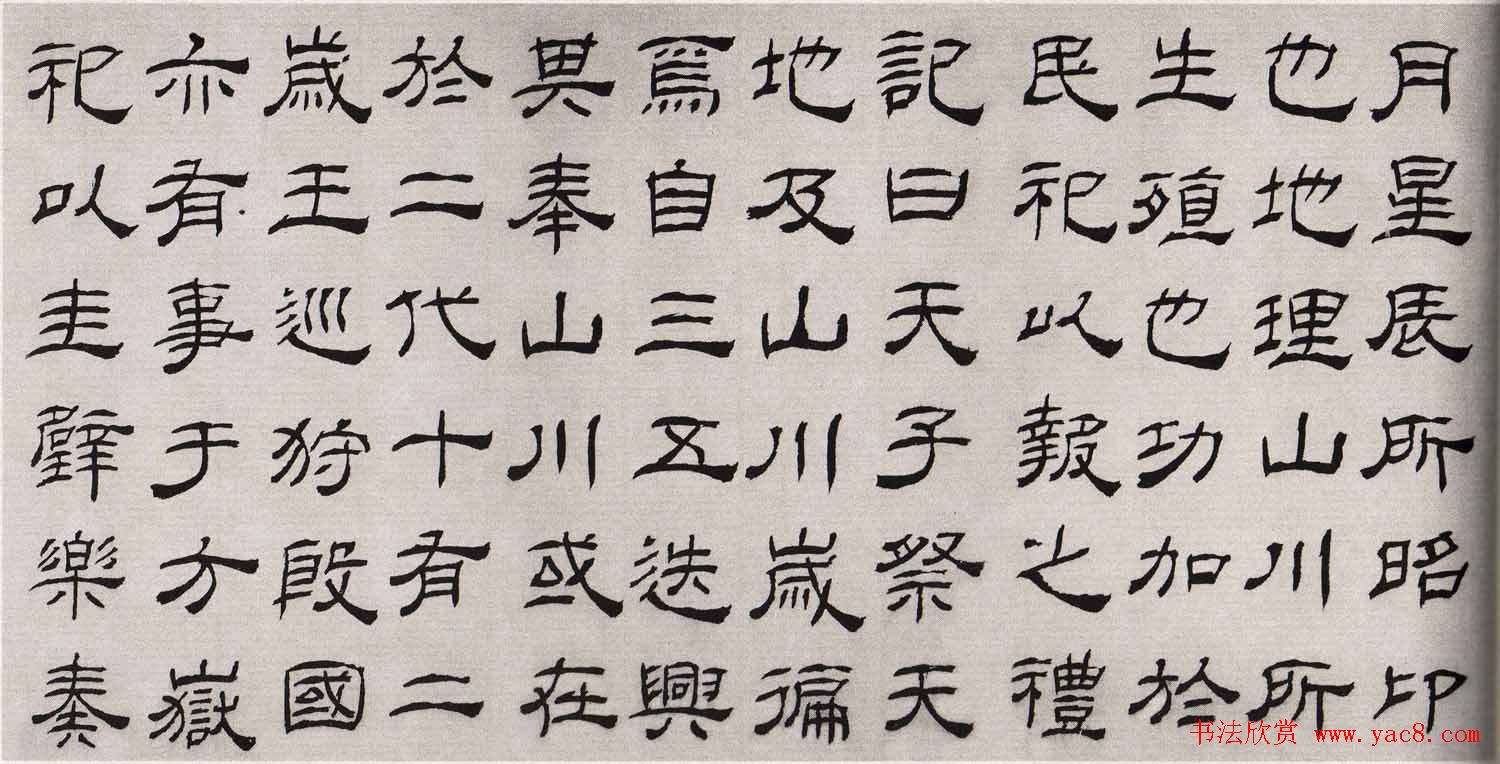 月星辰所昭卬
也地理山川所
生殖也功加於
民祀以報之禮
記曰天子祭天
地及山川歲徧
焉自三五迭興
其奉山川或在
於二代十有二
歲王巡狩殷國
亦有事于方嶽
祀以圭璧樂奏
书法欣赏 www.yac8.com